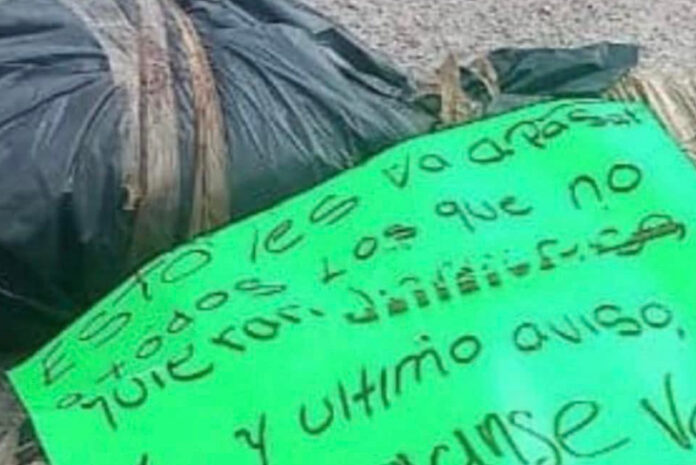 ESTO les va a pasar
a todos Los que no
quieran
y ultimo aviso,